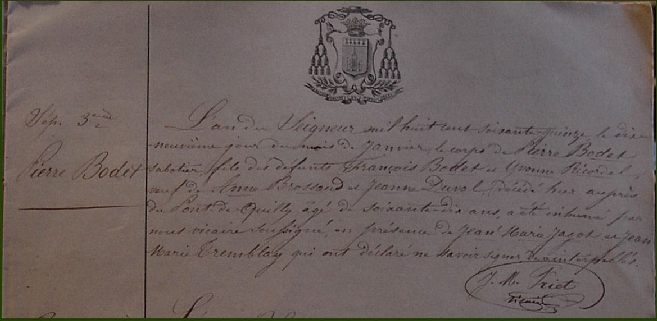 Sép. 3eme
Pierre Bodet
L'an du Seigneur mil huit cent soixante quinze le dix-
neuvième jour du mois de Janvier, le corps de Pierre Bodet,
sabotier, fils des défunts François Bodet et Yvonne Ricordel,
veuf de Anne Brossaud et Jeanne Duval, décédé hier auprès
du Pont de Quilly âgé de soixante-dix ans, a été inhumé par
nous vicaire soussigné, en présence de Jean Marie Jagot et Jean
Marie Tremblay qui ont déclaré ne savoir signer de ce interpellés.
J. M. Friot
vicaire